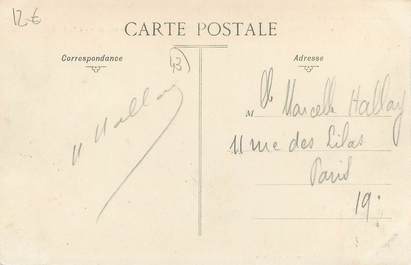 12 €
CARTE POSTALE
Correspondance
Adresse
43
M Hallay
Mlle Marcelle Hallay
11 rue des Lilas
Paris
19e